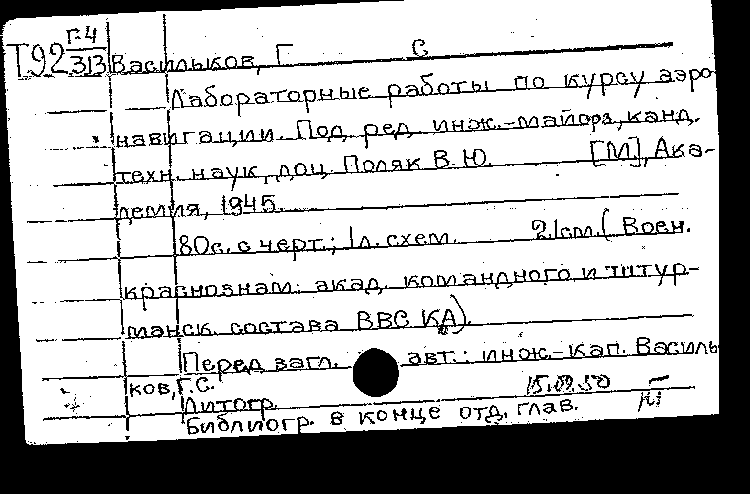 Г-4
Т92 313 Васильков, Г С
Лабораторные работы по курсу аэро-
навигации. Под ред. инж.-майора, канд.
техн. наук, доц. Поляк В.Ю. [М], Ака-
демия, 1945.
80с. с черт.; 1л. схем. 21cm. (Воен.
краснознам. акад. командного и штур-
манск. состава ВВС КА).
Перед загл. авт.: инж.-кап. Василь-
ков, Г.С.
Литогр. 15.09.50
Библиогр. в конце отд. глав.